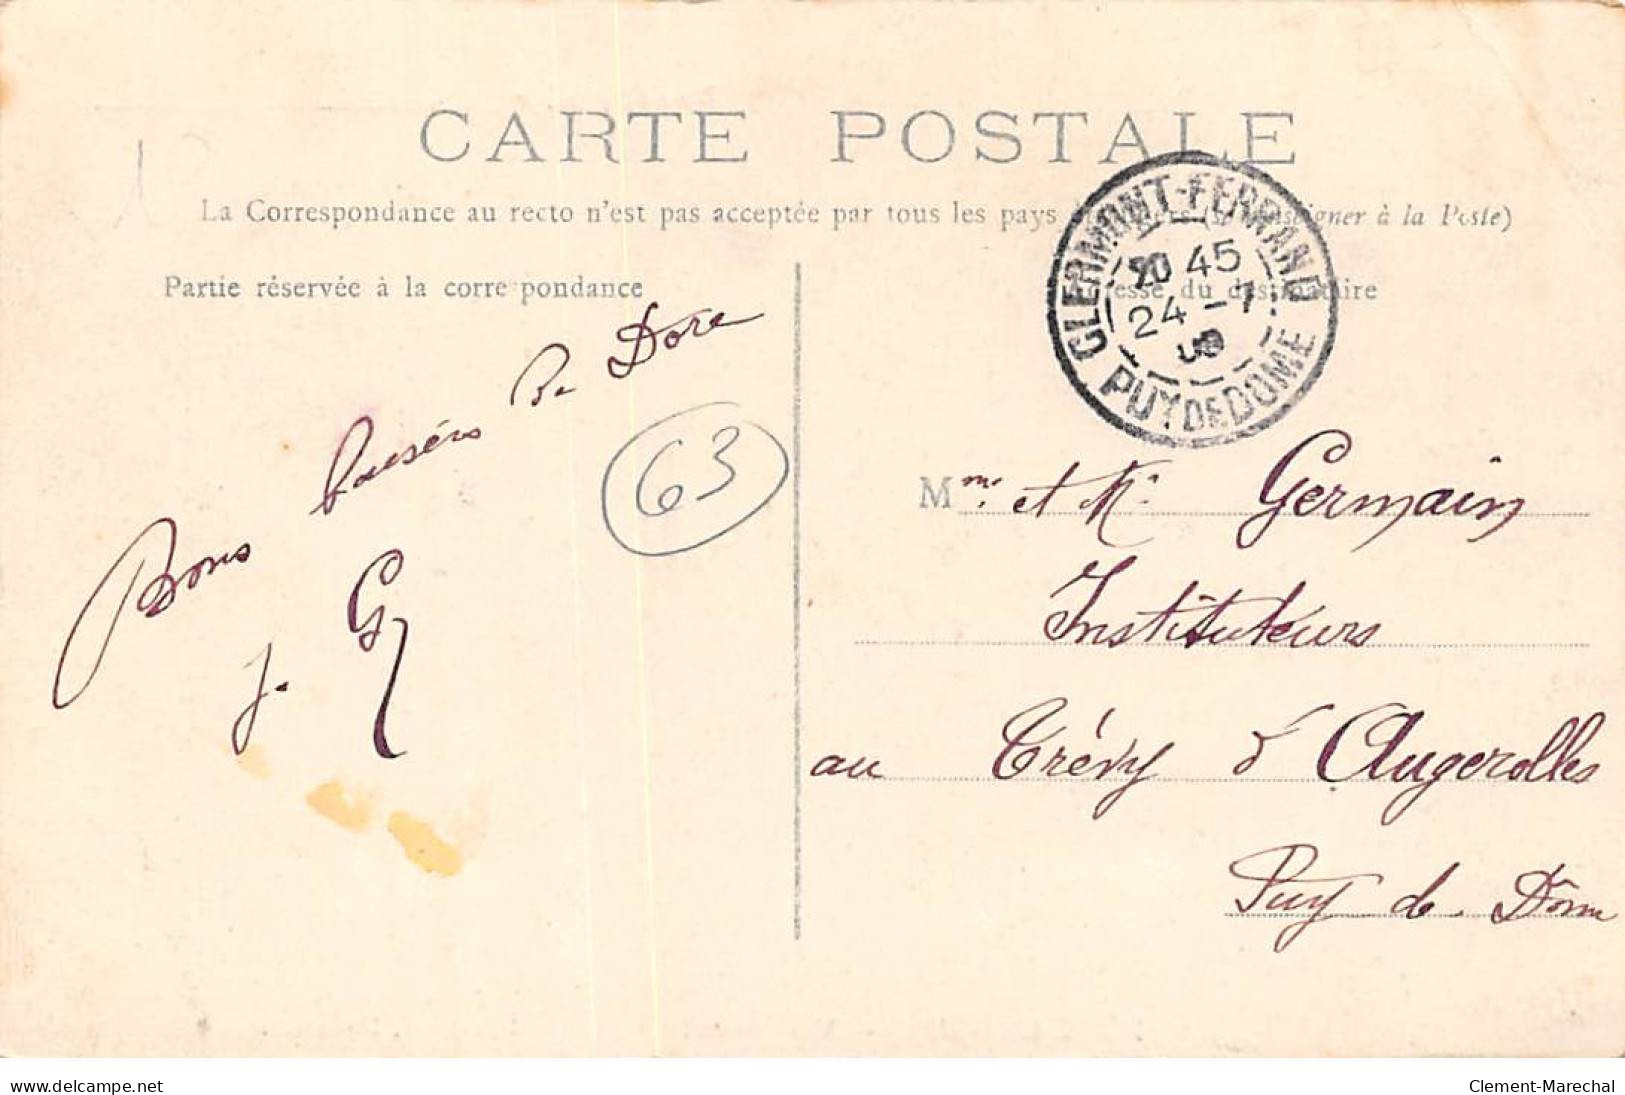 CARTE POSTALE
La Correspondance au recto n'est pas acceptée par tous les pays (se renseigner à la Poste)
Partie réservée à la correspondance
Adresse du destinataire
CLERMONT-FERRAND
20 45
24 - 7
PUY DE DOME
Bons baisers De Dora
J. G
63
Mme. et Mr. Germain
Instituteurs
au Trévy d'Augerolles
Puy de Dôme
delcampe.net
Clement-Marechal